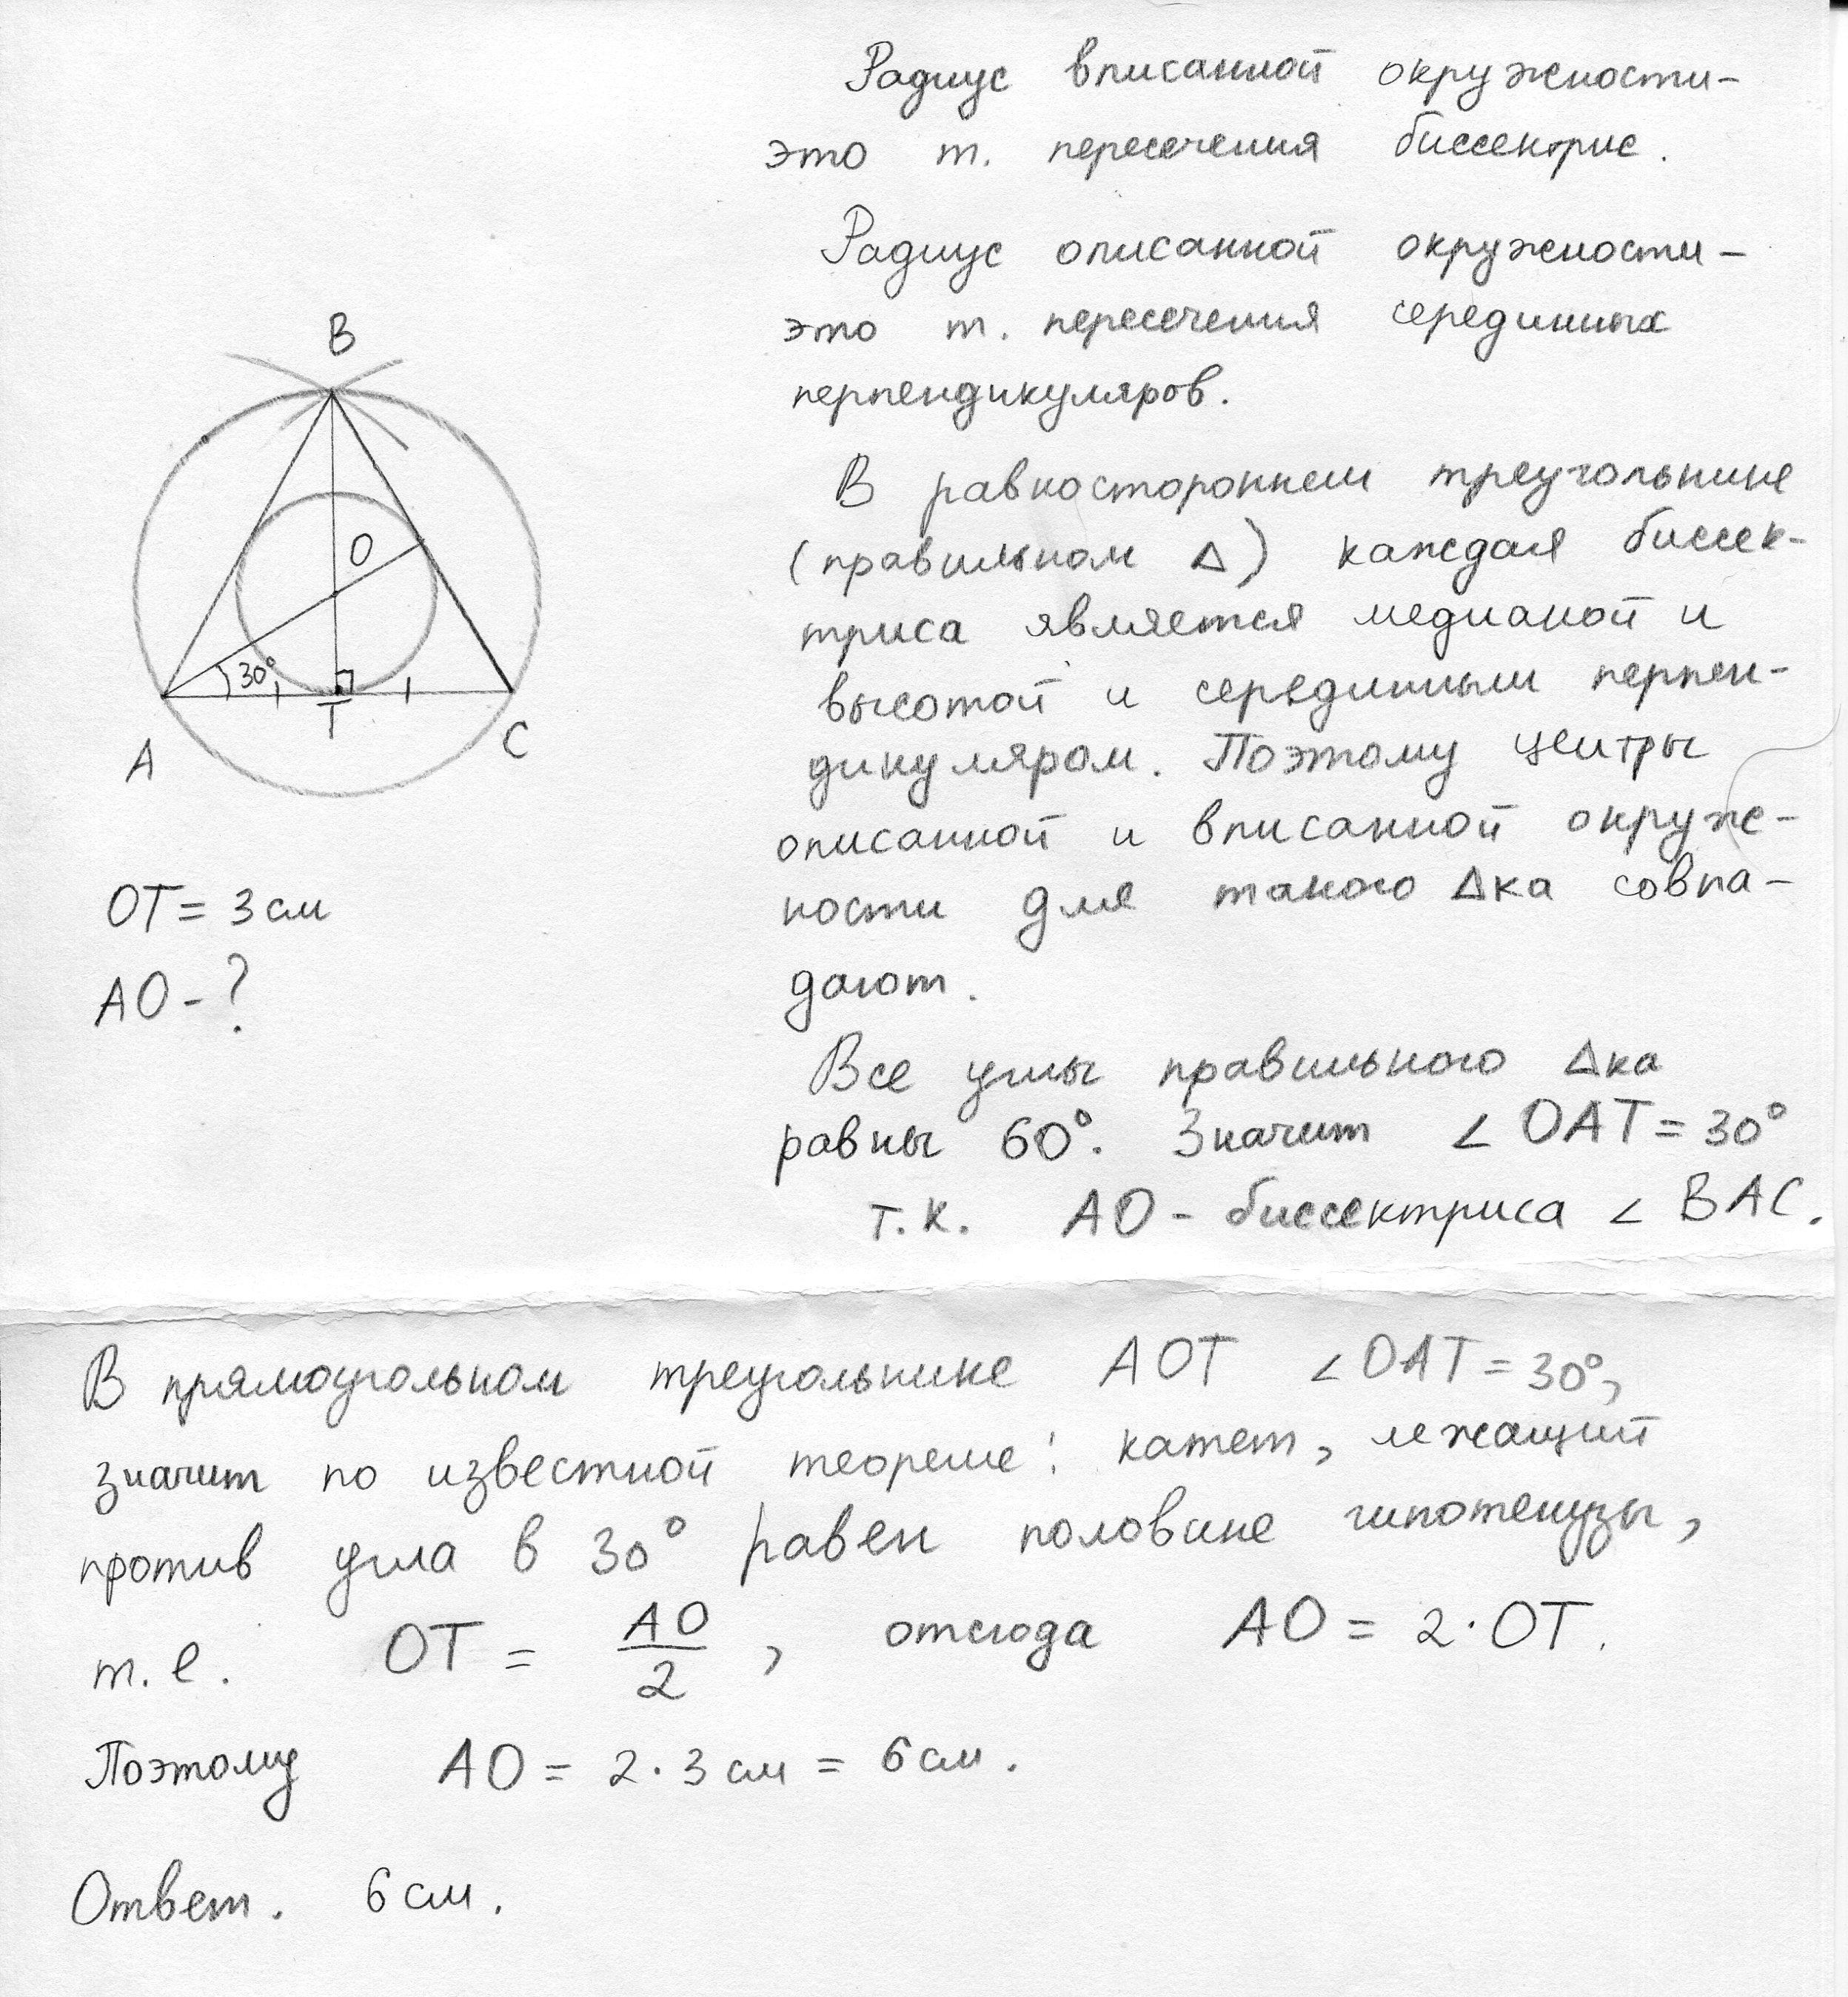 Радиус вписанной окружности-
это т. пересечения биссектрис.
Радиус описанной окружности-
это т. пересечения серединных
перпендикуляров.
В равностороннем треугольнике
(правильном Δ) каждая биссек-
триса является медианой и
высотой и серединным перпен-
дикуляром. Поэтому центры
описанной и вписанной окруж-
ности для такого Δка совпа-
дают.
Все углы правильного Δка
равны 60°. Значит ∠OAT = 30°
т.к. AO - биссектриса ∠BAC.
B
O
30°
T
A
C
OT = 3 см
AO - ?
В прямоугольном треугольнике AOT ∠OAT = 30°,
значит по известной теореме: катет, лежащий
против угла в 30° равен половине гипотенузы,
т.е. OT = AO/2, отсюда AO = 2·OT.
Поэтому AO = 2·3 см = 6 см.
Ответ. 6 см.